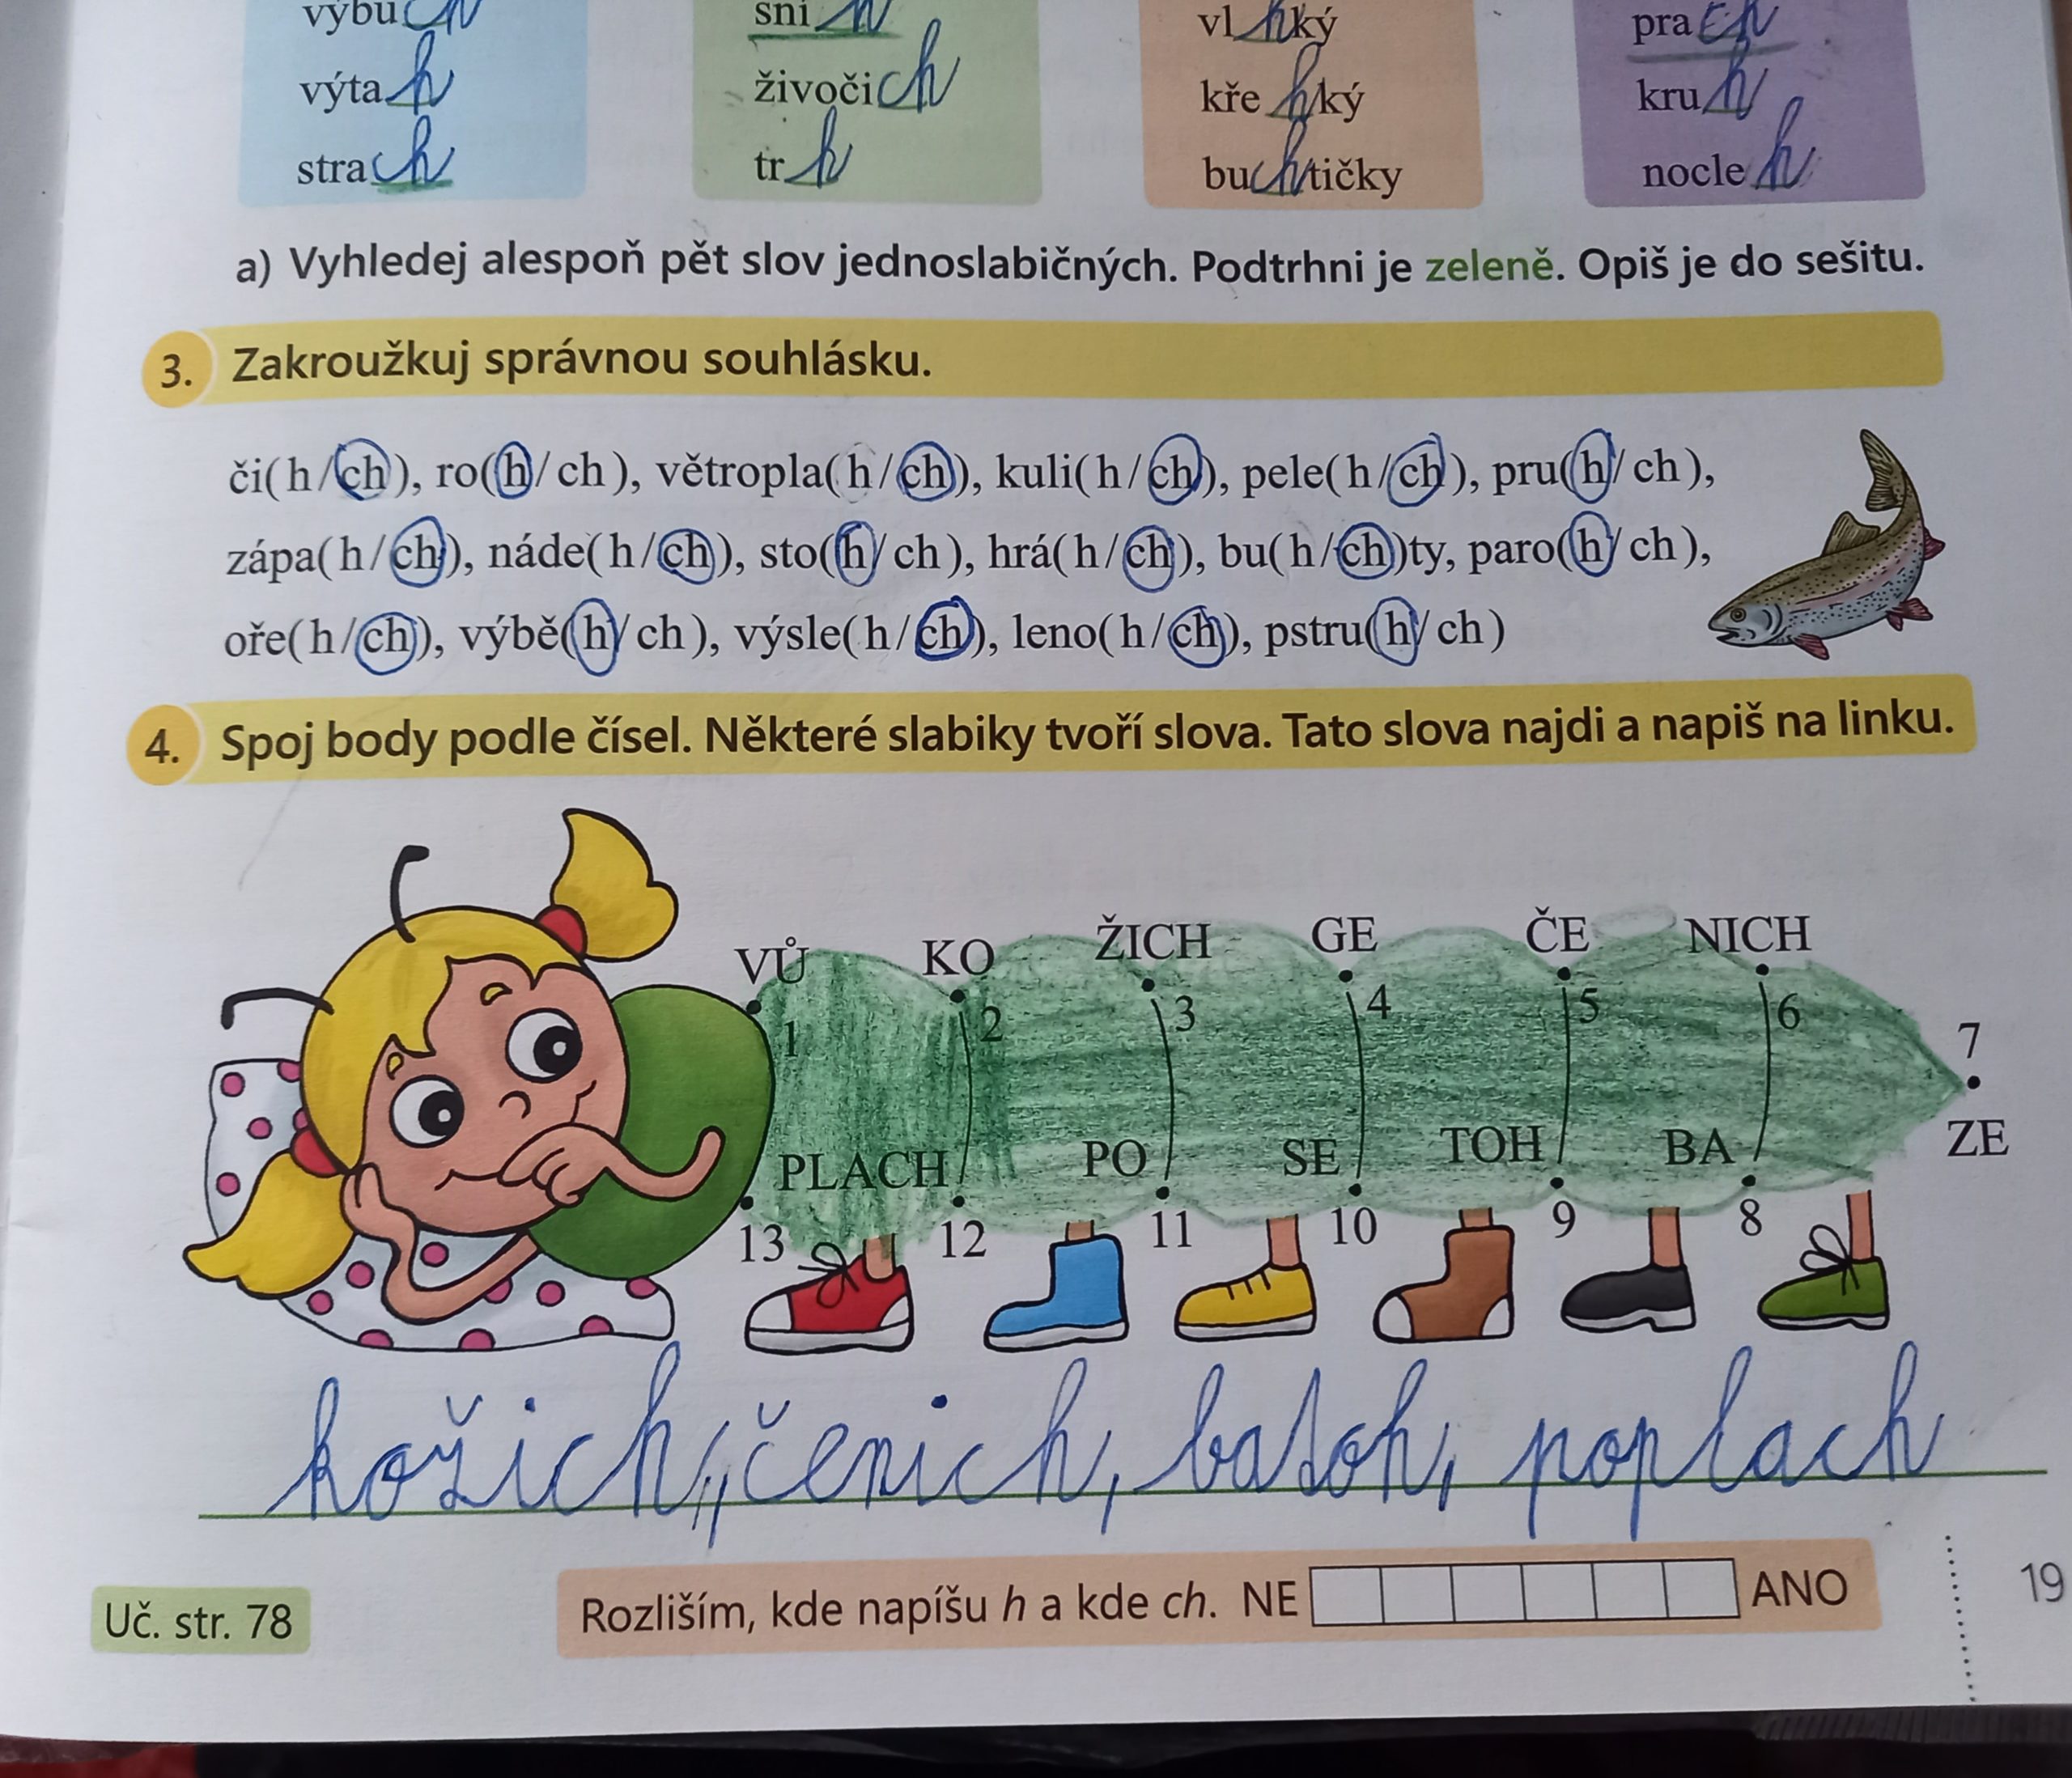 výbuch sníh vlhký prach
výtah živočich křehký kruh
strach trh buchtičky nocleh
a) Vyhledej alespoň pět slov jednoslabičných. Podtrhni je zeleně. Opiš je do sešitu.
3. Zakroužkuj správnou souhlásku.
či(h/ch), ro(h/ch), větropla(h/ch), kuli(h/ch), pele(h/ch), pru(h/ch),
zápa(h/ch), náde(h/ch), sto(h/ch), hrá(h/ch), bu(h/ch)ty, paro(h/ch),
oře(h/ch), výbě(h/ch), výsle(h/ch), leno(h/ch), pstru(h/ch)
4. Spoj body podle čísel. Některé slabiky tvoří slova. Tato slova najdi a napiš na linku.
VŮ KO ŽICH GE ČE NICH
1 2 3 4 5 6 7
PLACH PO SE TOH BA ZE
13 12 11 10 9 8
kožich, čenich, batoh, poplach
Uč. str. 78 Rozliším, kde napíšu h a kde ch. NE ANO 19